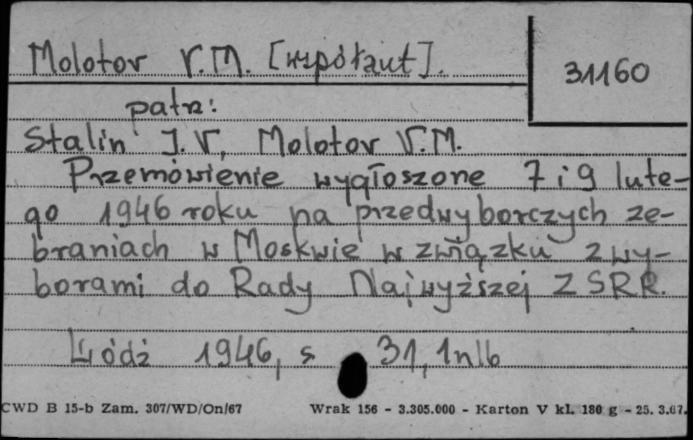 Molotov V.M. [współaut].
31160
patrz:
Stalin J.V, Molotov V.M.
Przemówienie wygłoszone 7 i 9 lute-
go 1946 roku na przedwyborczych ze-
braniach w Moskwie w związku z wy-
borami do Rady Najwyższej ZSRR.
Łódź 1946, s 31, 1nlb
CWD B 15-b Zam. 307/WD/On/67 Wrak 156 - 3.305.000 - Karton V kl. 180 g - 25. 3.67.